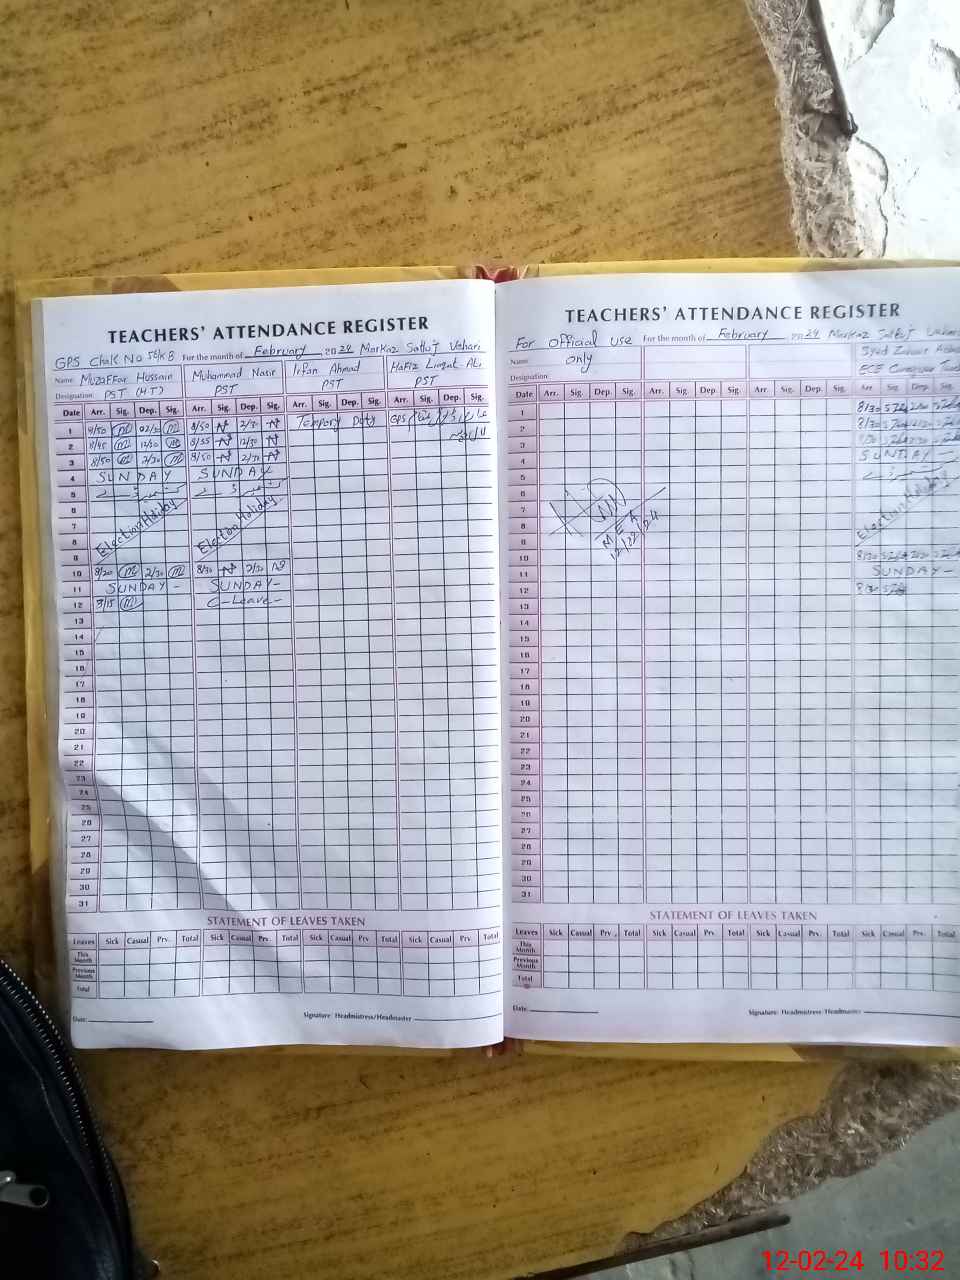 TEACHERS' ATTENDANCE REGISTER
GPS Chak No 56/KB For the month of February 2024 Markaz Satluj Vehari
Name: Muzaffar Hussain Muhammad Nasir Irfan Ahmad Hafiz Liaqat Ali
Designation: PST (H.T) PST PST PST
Date Arr. Sig. Dep. Sig. Arr. Sig. Dep. Sig. Arr. Sig. Dep. Sig. Arr. Sig. Dep. Sig.
1 8/50 02/30 8/50 2/30 Tempory Duty GPS
2 8/45 12/30 8/55 12/30
3 8/50 2/30 8/50 2/30
4 SUNDAY SUNDAY
5
6
7 Election Holiday Election Holiday
8
9
10 8/20 2/30 8/30 2/30
11 SUNDAY - SUNDAY -
12 8/15 C-Leave-
13
14
15
16
17
18
19
20
21
22
23
24
25
26
27
28
29
30
31
STATEMENT OF LEAVES TAKEN
Leaves Sick Casual Prv. Total Sick Casual Prv. Total Sick Casual Prv. Total Sick Casual Prv. Total
This Month
Previous Month
Total
Date: Signature: Headmistress/Headmaster
TEACHERS' ATTENDANCE REGISTER
For Official use For the month of February 2024 Markaz Satluj Vehari
Name: only Syed
Designation: ECE
Date Arr. Sig. Dep. Sig. Arr. Sig. Dep. Sig. Arr. Sig. Dep. Sig. Arr Sig. Dep. Sig.
1 8/30
2 8/30
3
4 SUNDAY -
5
6
7 Election Holiday
8 MEA
9 12/02/24
10 8/30
11 SUNDAY -
12 8/30
13
14
15
16
17
18
19
20
21
22
23
24
25
26
27
28
29
30
31
STATEMENT OF LEAVES TAKEN
Leaves Sick Casual Prv. Total Sick Casual Prv. Total Sick Casual Prv. Total Sick Casual Prv. Total
This Month
Previous Month
Total
Date: Signature: Headmistress/Headmaster
12-02-24 10:32